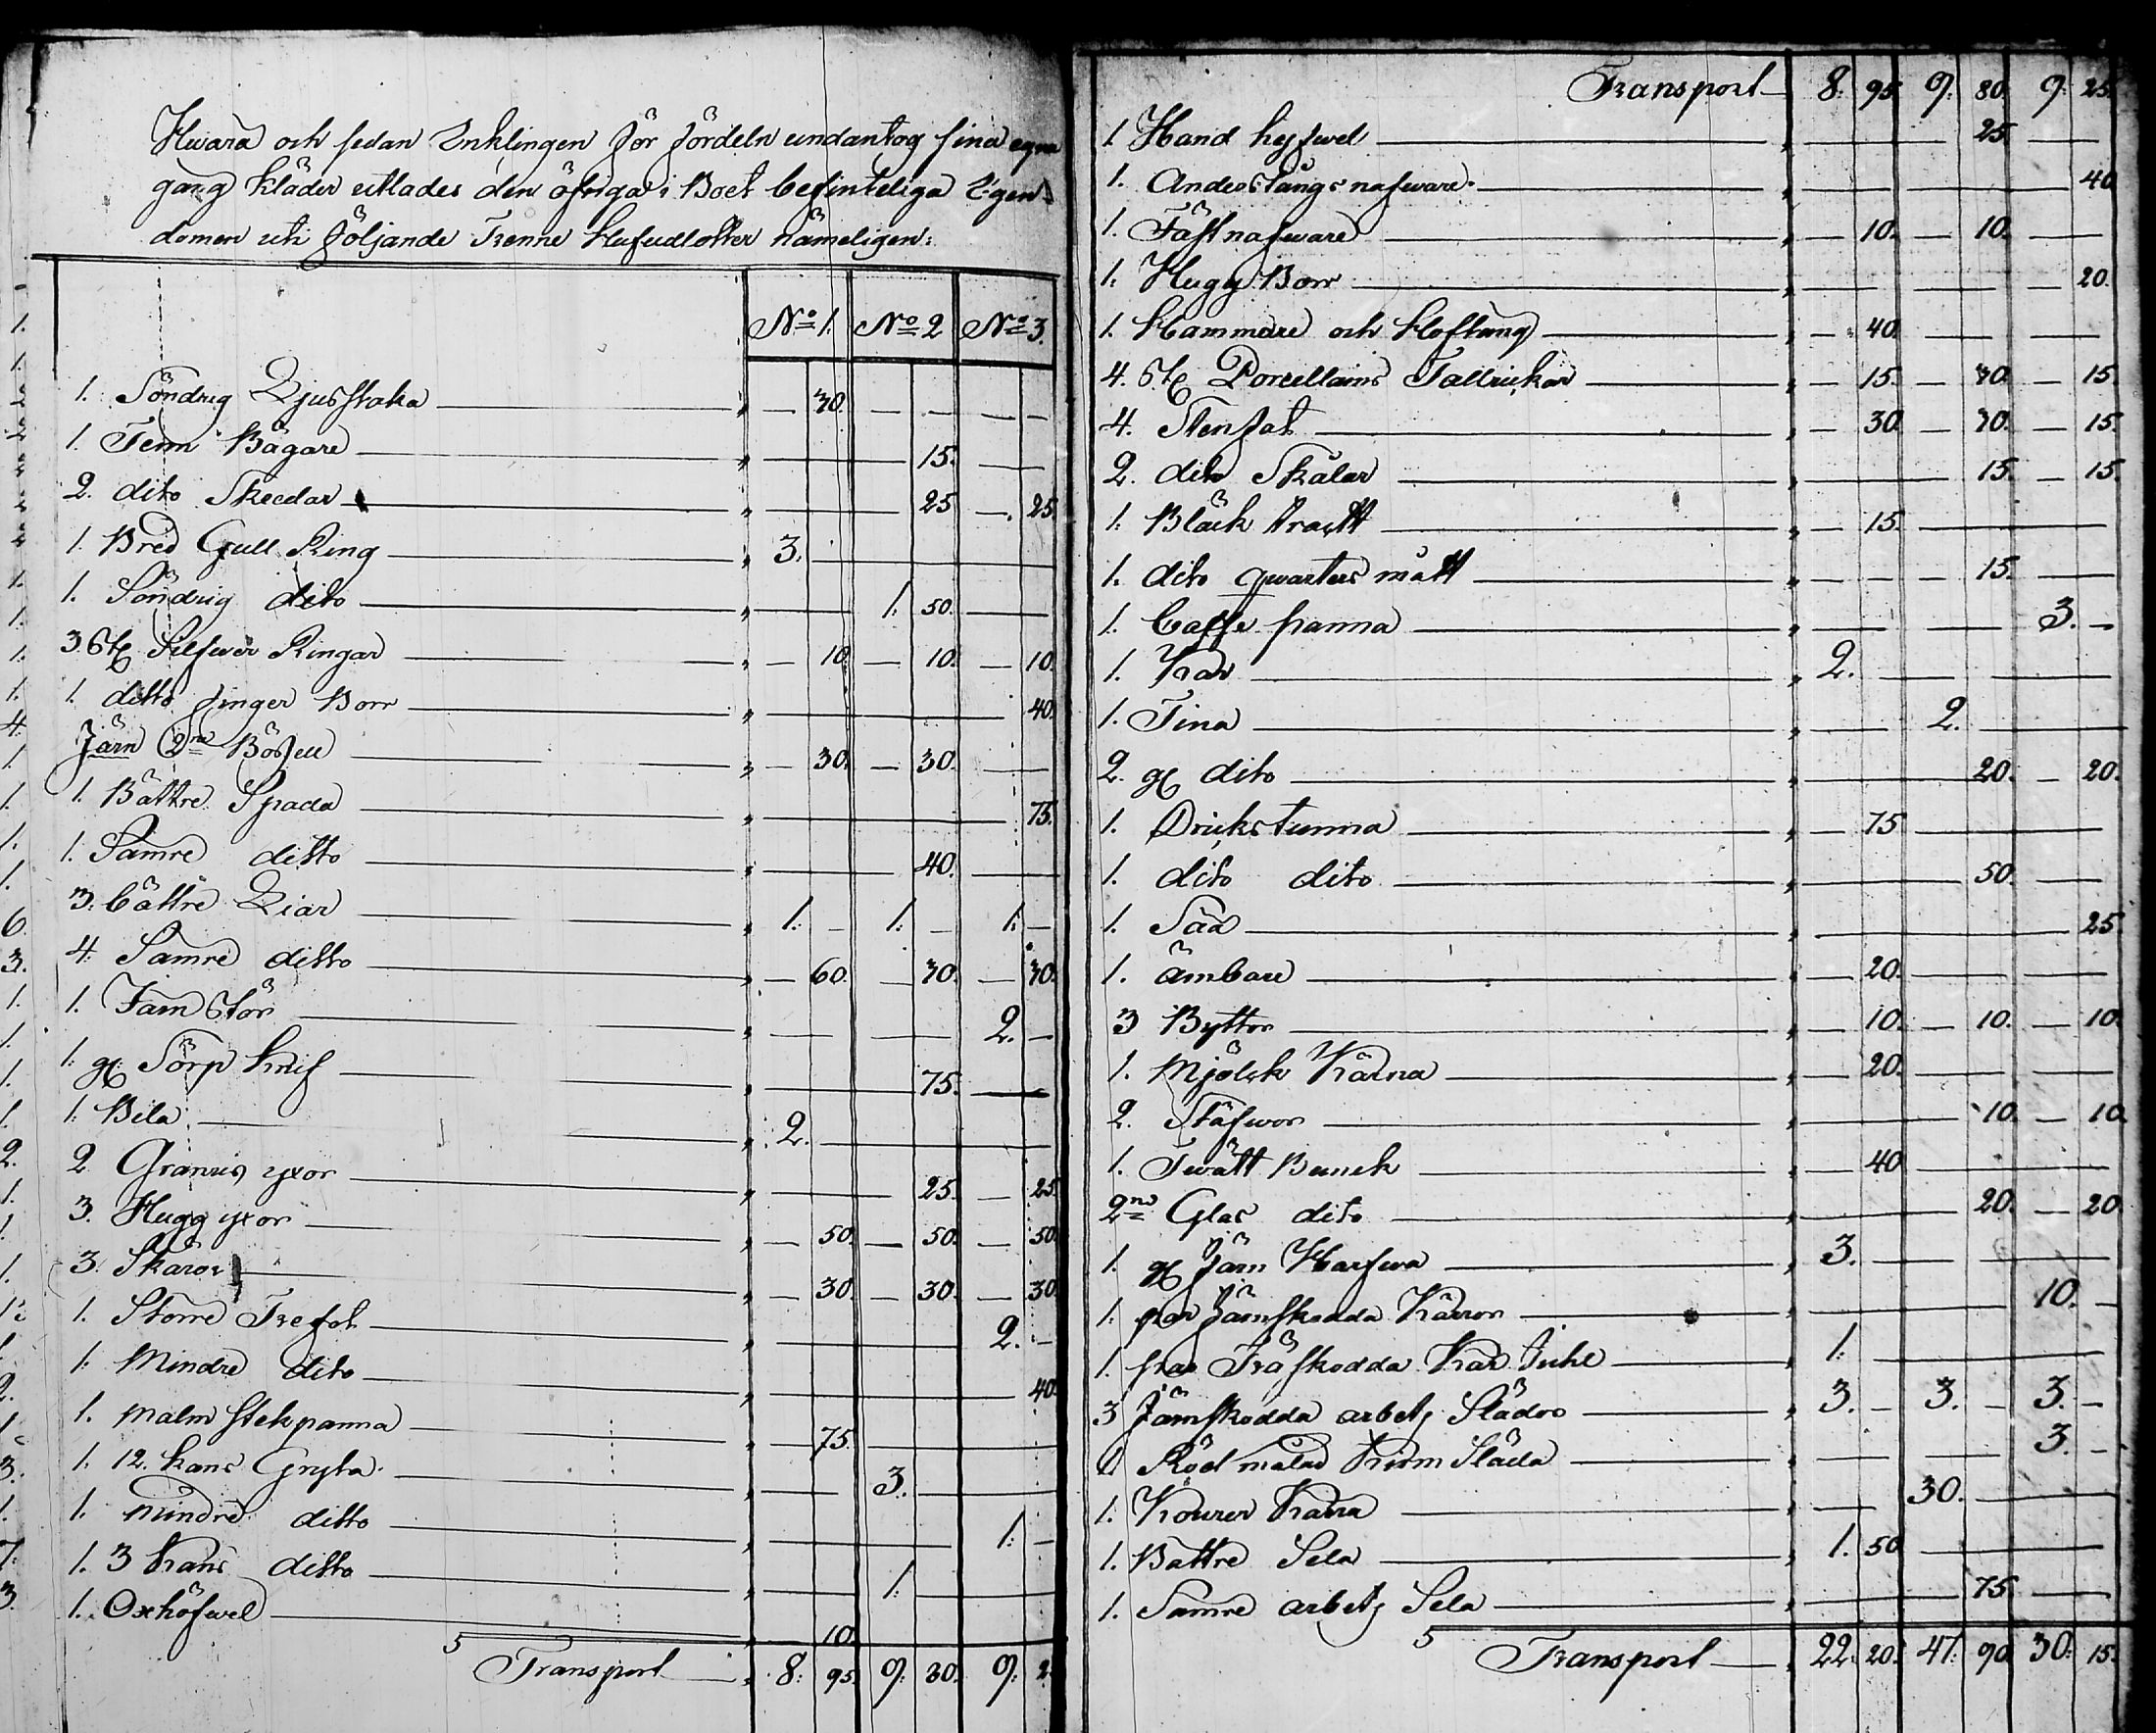 Hwara och sedan Enklingen för fördeln undantog sina egna
gang kläder utlades den öfriga i Boet befinteliga Egen-
domen uti följande Trenne Hufvudlotter nämeligen:
No 1. No 2 No 3.
1. Söndrig Ljusstaka — 30. — — — —
1. Tenn Bägare — 15. —
2. dito Skedar — 25 — 25.
1. Bred Gull Ring 3. —
1. Söndrig dito — 1. 50. —
3 St Silfwer Ringar — 10. — 10. — 10.
1. ditto finger Borr — 40.
Järn 2ne Bösjell — 30. — 30. —
1. Bättre Spada — 75.
1. Sämre ditto — 40. —
3. bättre Liar 1. — 1. — 1. —
4. Sämre ditto — 60. — 30. — 30.
1. Famstör — 2. —
1. gl Sörp knif — 75. —
1. Bila 2. —
2 Granris yxor — 25. — 25.
3. Hugg yxor — 50. — 50. — 50.
3. Skäror — 30. — 30. — 30.
1. Större Trefot — 2. —
1. Mindre dito — 40.
1. Malm stekpanna — 75. —
1. 12. kans Gryta — 3. —
1. mindre ditto — 1. —
1. 3 kans ditto — 1. —
1. Oxhöfwel — 10.
Transport 8. 95. 9. 30. 9. 2
Transport 8. 95. 9. 80. 9. 25.
1 Hand hyfwel — 25. —
1. Andestångs nafware — 40
1. Fästnafware — 10. — 10. —
1. Hugg Borr — 20.
1. Hammare och Hoftång — 40. —
4. St Porcellains Tallrickar — 15. — 30 — 15.
4. Stenfat — 30 — 30. — 15.
2. dito Skålar — 15. — 15.
1. Bläck tractt — 15. —
1. dito qwarters mått — 15. —
1. Caffe panna — 3. —
1. Kar 2. —
1. Tina — 2. —
2. gl dito — 20. — 20.
1. Drickstunna — 75 —
1. dito dito — 50. —
1. Såa — 25.
1. ämbare — 20. —
3 Byttor — 10. — 10. — 10.
1. Mjölck Kärna — 20. —
2. Stäfwor — 10. — 10.
1. Twätt Bunck — 40 —
2ne Glas dito — 20. — 20
1. gl Järn Harfwa 3. —
1. par Järnskodda Kärror — 10. —
1. par Träskodda Kär hiuhl 1. —
3 Järnskodda arbets Slädor 3. — 3. — 3. —
1 Röd målad Krim Släda — 3. —
1. Kourer Kärra — 30. —
1. Bättre Sela 1. 50 —
1. Sämre arbets Sela — 75. —
Transport 22. 20. 47. 90 30. 15.